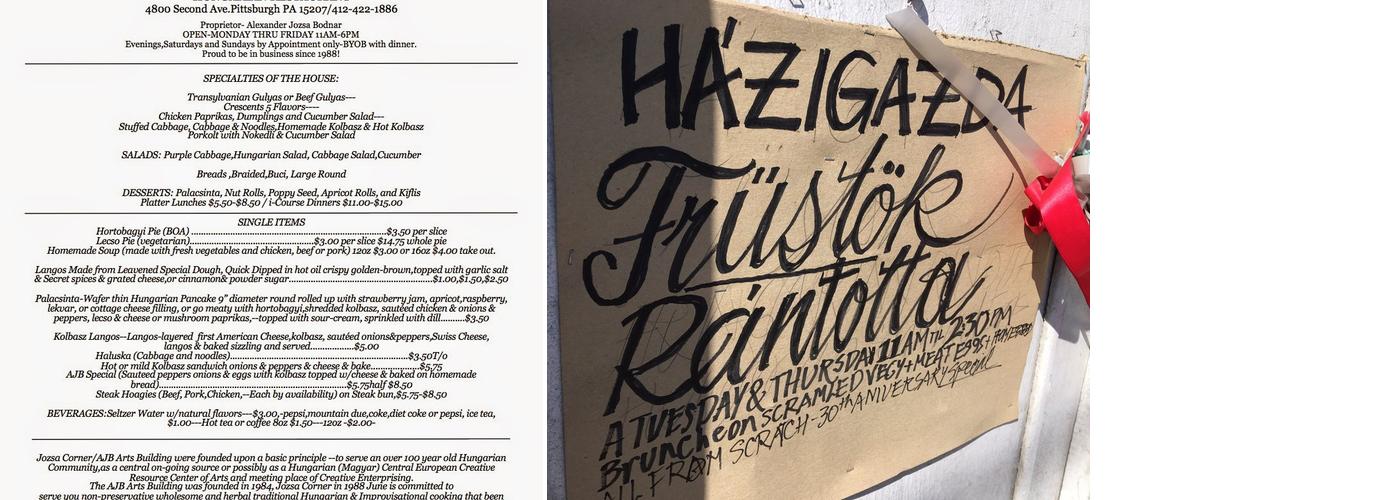 4800 Second Ave.Pittsburgh PA 15207/412-422-1886
Proprietor- Alexander Jozsa Bodnar
OPEN-MONDAY THRU FRIDAY 11AM-6PM
Evenings,Saturdays and Sundays by Appointment only-BYOB with dinner.
Proud to be in business since 1988!
SPECIALTIES OF THE HOUSE:
Transylvanian Gulyas or Beef Gulyas---
Crescents 5 Flavors----
Chicken Paprikas, Dumplings and Cucumber Salad---
Stuffed Cabbage, Cabbage & Noodles,Homemade Kolbasz & Hot Kolbasz
Porkolt with Nokedli & Cucumber Salad
SALADS: Purple Cabbage,Hungarian Salad, Cabbage Salad,Cucumber
Breads ,Braided,Buci, Large Round
DESSERTS: Palacsinta, Nut Rolls, Poppy Seed, Apricot Rolls, and Kiflis
Platter Lunches $5.50-$8.50 / 1-Course Dinners $11.00-$15.00
SINGLE ITEMS
Hortobagyi Pie (BOA) ......................................................................$3.50 per slice
Lecso Pie (vegetarian)............................................$3.00 per slice $14.75 whole pie
Homemade Soup (made with fresh vegetables and chicken, beef or pork) 12oz $3.00 or 16oz $4.00 take out.
Langos Made from Leavened Special Dough, Quick Dipped in hot oil crispy golden-brown,topped with garlic salt
& Secret spices & grated cheese,or cinnamon& powder sugar...................................................$1.00,$1.50,$2.50
Palacsinta-Wafer thin Hungarian Pancake 9” diameter round rolled up with strawberry jam, apricot,raspberry,
lekvar, or cottage cheese filling, or go meaty with hortobagyi,shredded kolbasz, sautéed chicken & onions &
peppers, lecso & cheese or mushroom paprikas,--topped with sour-cream, sprinkled with dill.........$3.50
Kolbasz Langos--Langos-layered first American Cheese,kolbasz, sautéed onions&peppers,Swiss Cheese,
langos & baked sizzling and served................$5.00
Haluska (Cabbage and noodles)................................................................$3.50T/o
Hot or mild Kolbasz sandwich onions & peppers & cheese & bake..................$5.75
AJB Special (Sauteed peppers onions & eggs with kolbasz topped w/cheese & baked on homemade
bread)..................................................................$5.75half $8.50
Steak Hoagies (Beef, Pork,Chicken,--Each by availability) on Steak bun,$5.75-$8.50
BEVERAGES:Seltzer Water w/natural flavors---$3.00,-pepsi,mountain due,coke,diet coke or pepsi, ice tea,
$1.00---Hot tea or coffee 8oz $1.50---12oz -$2.00-
Jozsa Corner/AJB Arts Building were founded upon a basic principle --to serve an over 100 year old Hungarian
Community,as a central on-going source or possibly as a Hungarian (Magyar) Central European Creative
Resource Center of Arts and meeting place of Creative Enterprising.
The AJB Arts Building was founded in 1984, Jozsa Corner in 1988 June is committed to
serve you non-preservative wholesome and herbal traditional Hungarian & Improvisational cooking that been
HÁZIGAZDA
Früstök
Rántotta
A TUESDAY & THURSDAY 11AM TIL 2:30PM
Bruncheon SCRAMBLED VEGY+MEAT EGGS+
ALL FROM SCRATCH-30th ANIVERSARY special